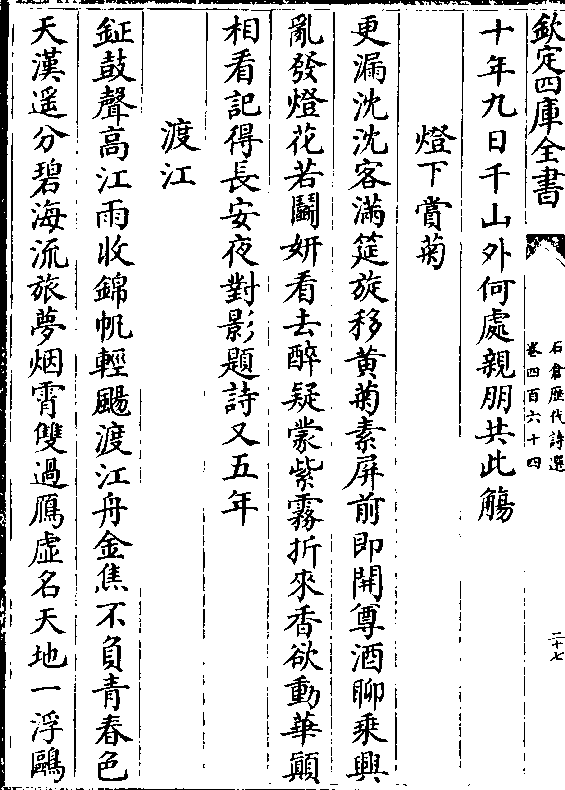 欽定四庫全書
石倉歷代詩選
卷四百六十四
二十七
十年九日千山外何處親朋共此觴
燈下賞菊
更漏沈沈客滿筵旋移黄菊素屏前即開尊酒聊乘興
亂發燈花若鬭妍看去醉疑蒙紫霧折來香欲動華顚
相看記得長安夜對影題詩又五年
渡江
鉦鼓聲高江雨收錦帆輕颺渡江舟金焦不負青春色
天漢遥分碧海流旅夢烟霄雙過鴈虛名天地一浮鷗